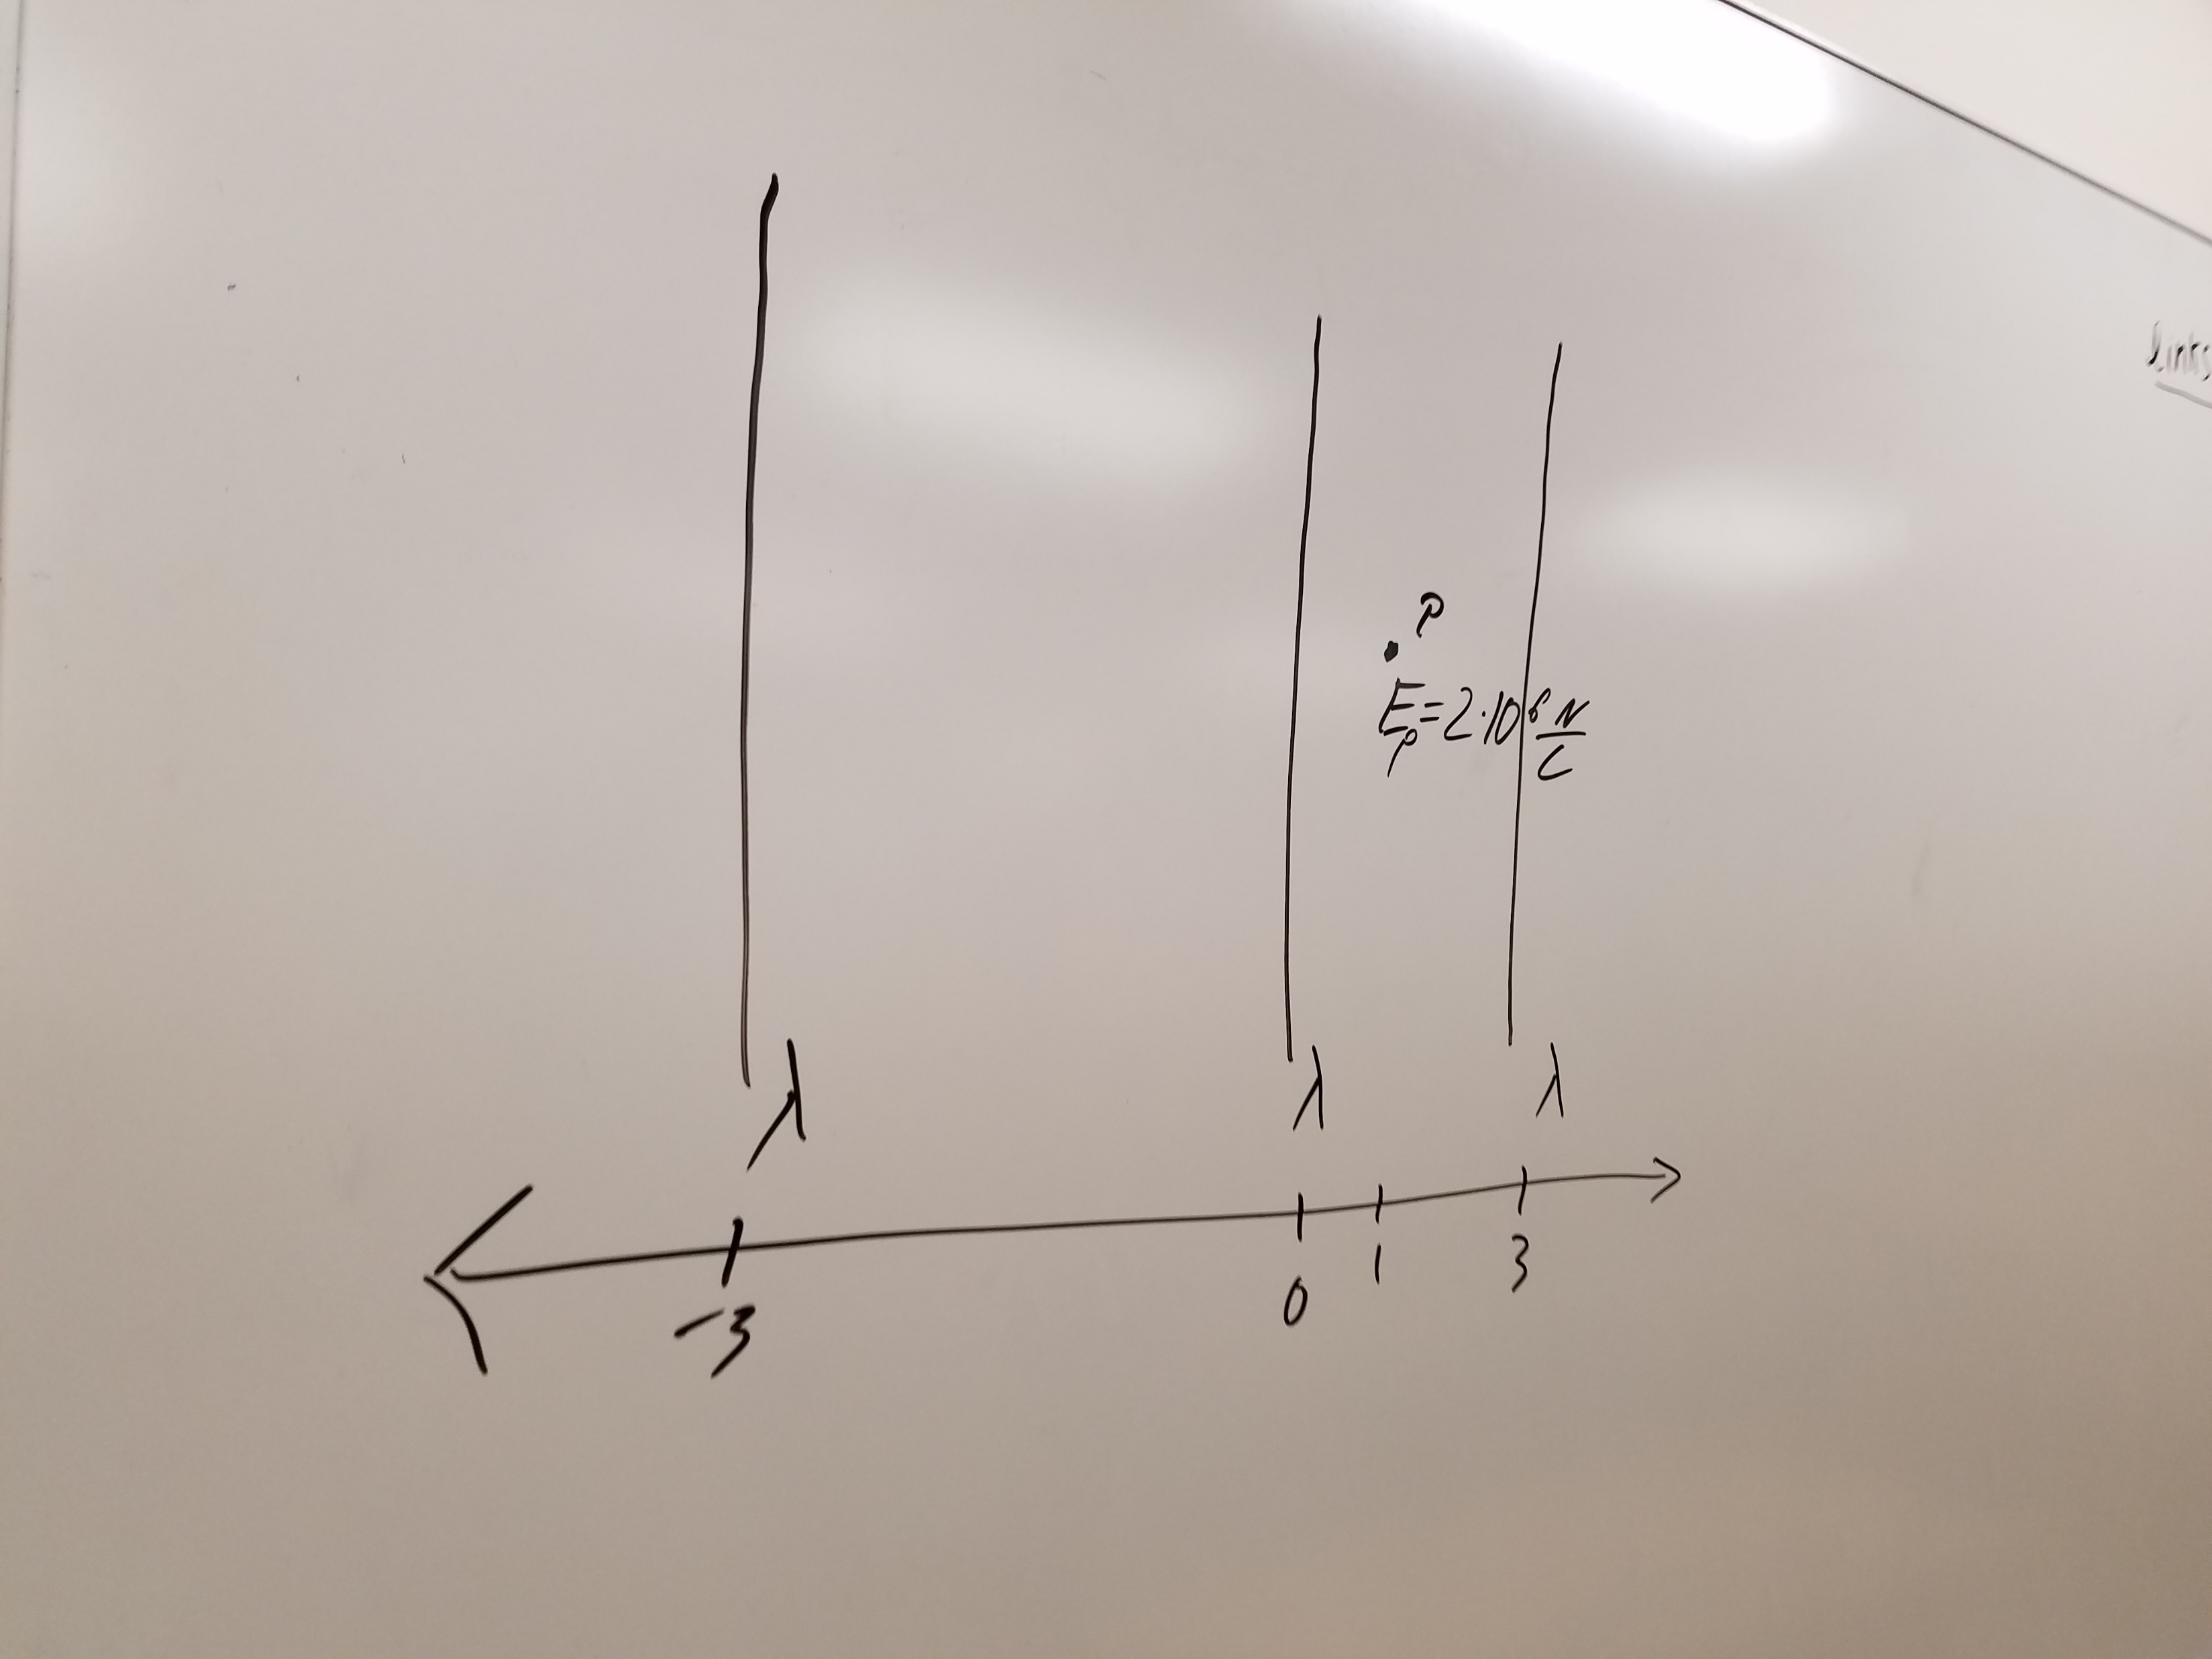 links
P
E_P = 2·10⁶ N/C
λ λ λ
-3 0 1 3